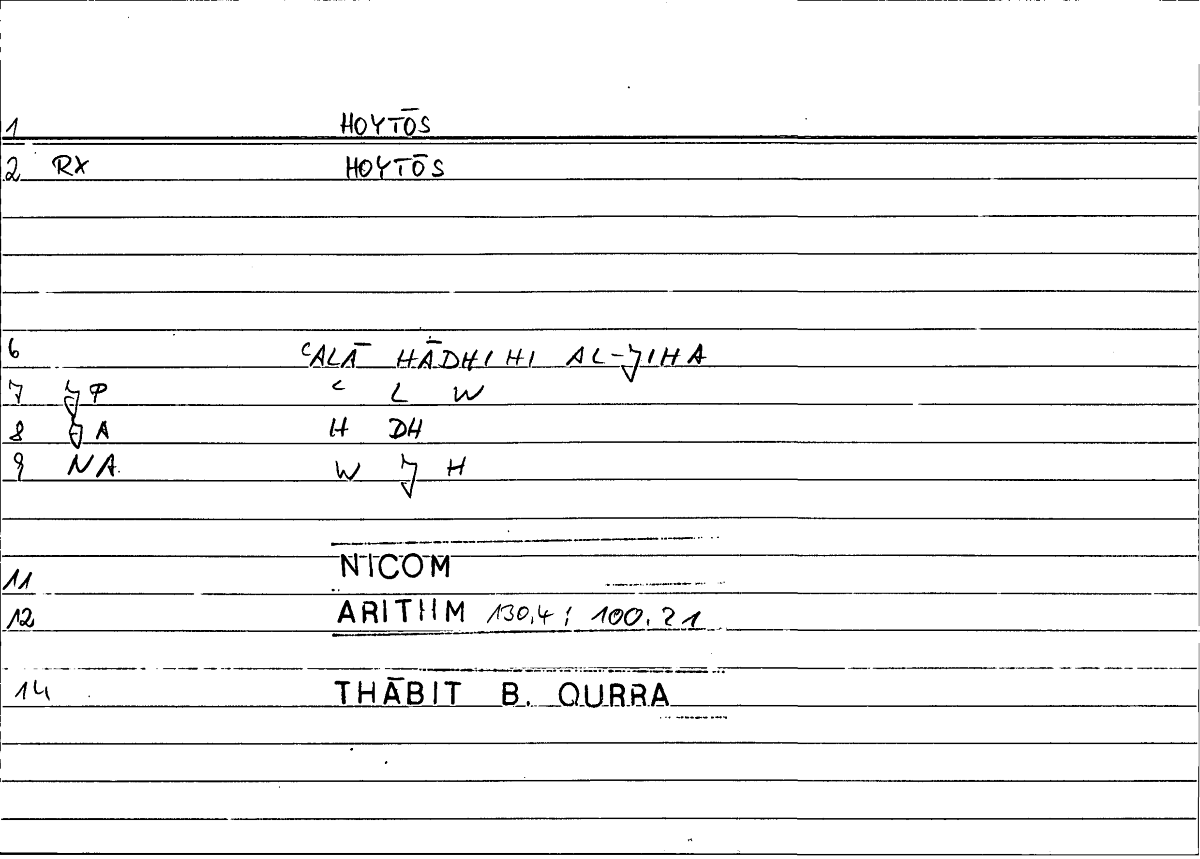 1 HOYTŌS
2 RX HOYTŌS
6 ʿALĀ HĀDHIHI AL-JIHA
7 JP ʿ L W
8 JA H DH
9 NA W J H
11 NICOM
12 ARITHM 130,4; 100.21
14 THĀBIT B. QURRA